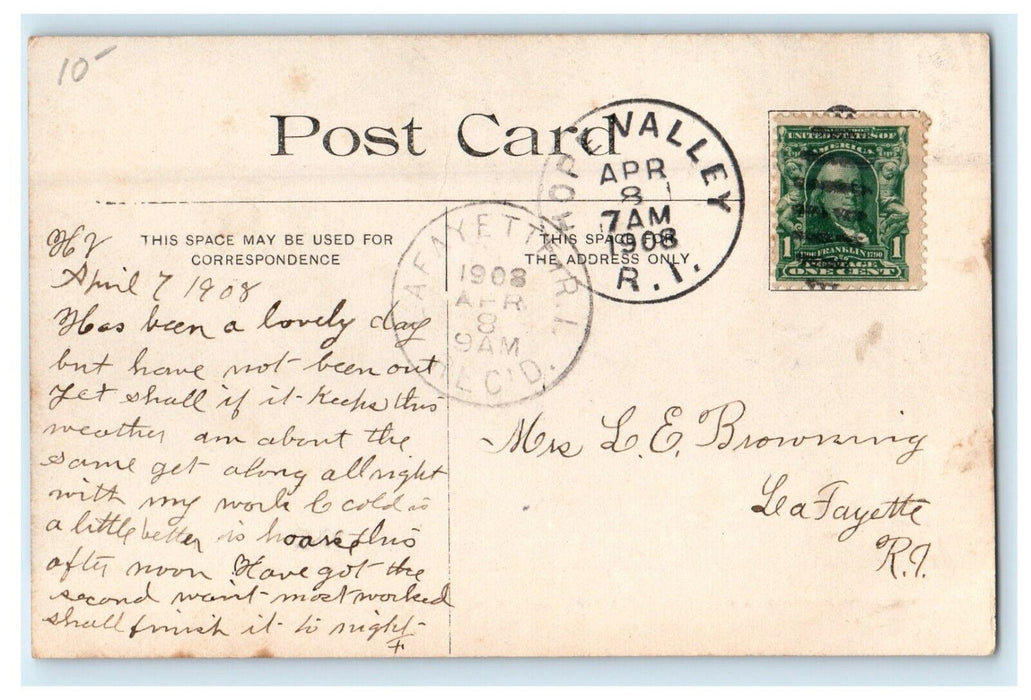 10-
Post Card
HOPE VALLEY
APR
8
7AM
1908
R.I.
UNITED STATES OF
AMERICA
1 FRANKLIN 1790 1
POSTAGE
ONE CENT
THIS SPACE MAY BE USED FOR
CORRESPONDENCE
THIS SPACE FOR
THE ADDRESS ONLY
LAFAYETTE, R.I.
1908
APR
8
9AM
REC'D.
H V
April 7 1908
Has been a lovely day
but have not been out
yet shall if it keeps this
weather am about the
same get along allright
with my work & cold is
a little better is hoarse this
after noon. Have got the
second waist most worked
shall finish it to night
Mrs L. E. Browning
LaFayette
R.I.